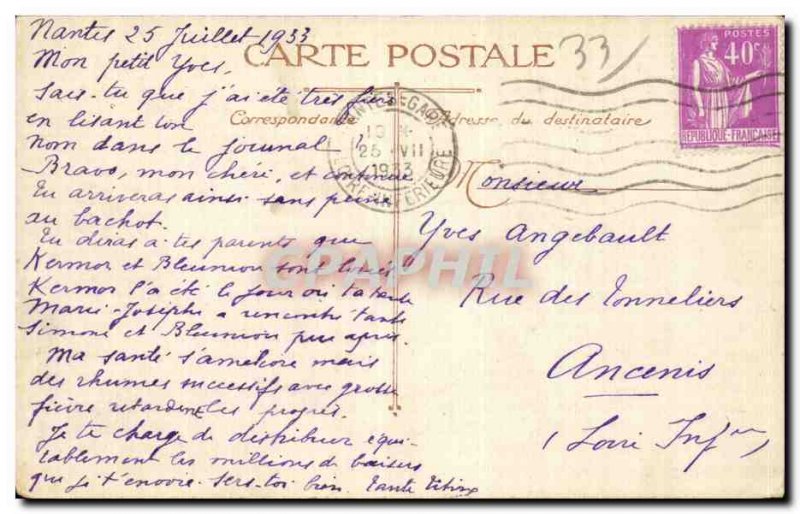 Nantes 25 Juillet 1933
CARTE POSTALE
33
Mon petit Yves,
Sais-tu que j'ai été très fière
en lisant ton
nom dans le journal !
Bravo, mon chéri, et continue
Tu arriveras ainsi sans peine
au bachot.
Tu diras à tes parents que
Kermor et sont "loués"
Kermor l'a été le jour où ta tante
Marie-Josèphe a rencontré tante
Simone et peu après.
Ma santé s'améliore mais
des rhumes successifs avec grosse
fièvre retardent les progrès.
Je te charge de distribuer équi-
tablement les millions de baisers
que je t'envoie. Sers-toi bien. Tante
Correspondance
Adresse du destinataire
NANTES-GARE
25 VII
1933
LOIRE INFERIEURE
POSTES
40c
REPUBLIQUE-FRANÇAISE
Monsieur
Yves Angebault
Rue des Tonneliers
Ancenis
(Loire Infre)
CPAPHIL